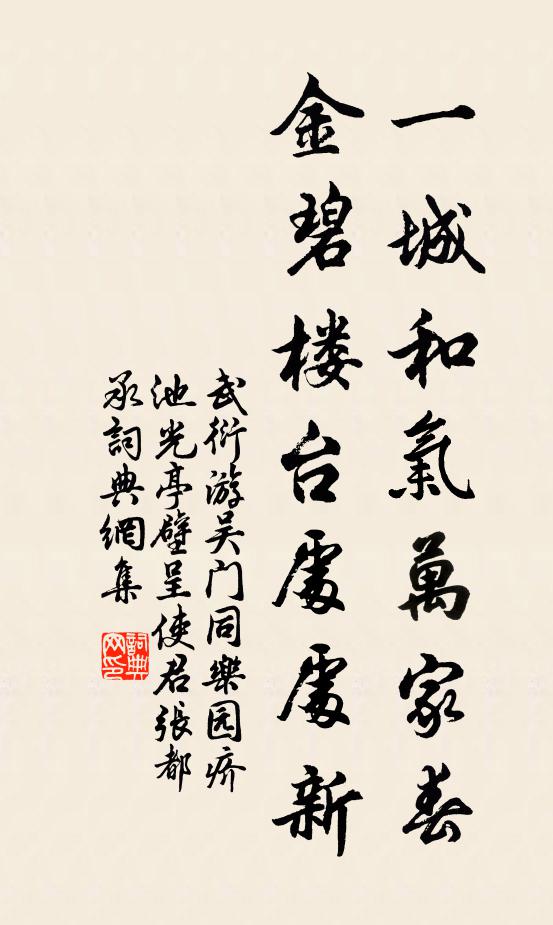 一城和氣萬家春
金碧楼台處處新
武衍游吴门同樂园疥
池光亭壁呈使君張都
承詞典網集
詞典
网印